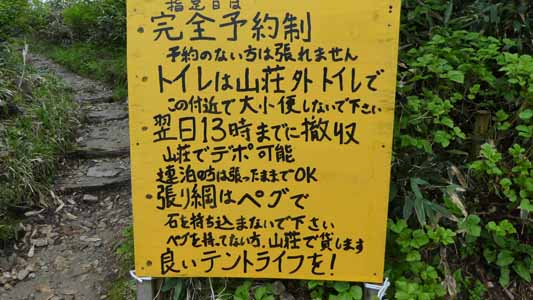 指定日は
完全予約制
予約のない方は張れません
トイレは山荘外トイレで
この付近で大小便しないで下さい
翌日13時までに撤収
山荘でデポ可能
連泊の方は張ったままでOK
張り綱はペグで
石を持ち込まないで下さい
ペグを持ってない方、山荘で貸します
良いテントライフを!